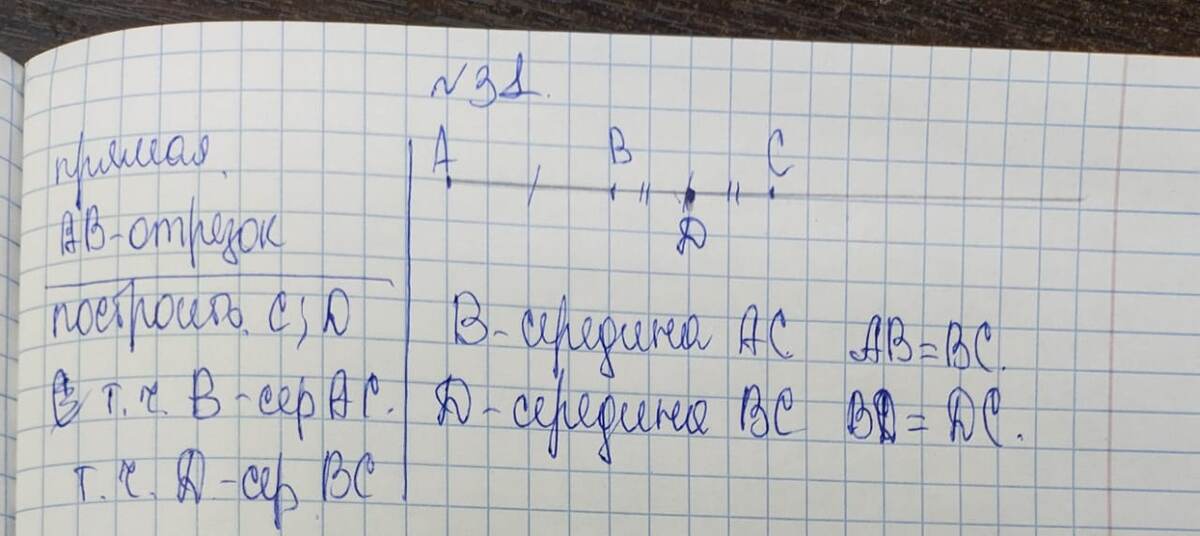 № 31.
прямая
АВ-отрезок
построить С; D
т.ч. В-сер АС.
т.ч. D-сер ВС
А В С
D
В-середина АС АВ=ВС.
D-середина ВС ВD= DC.